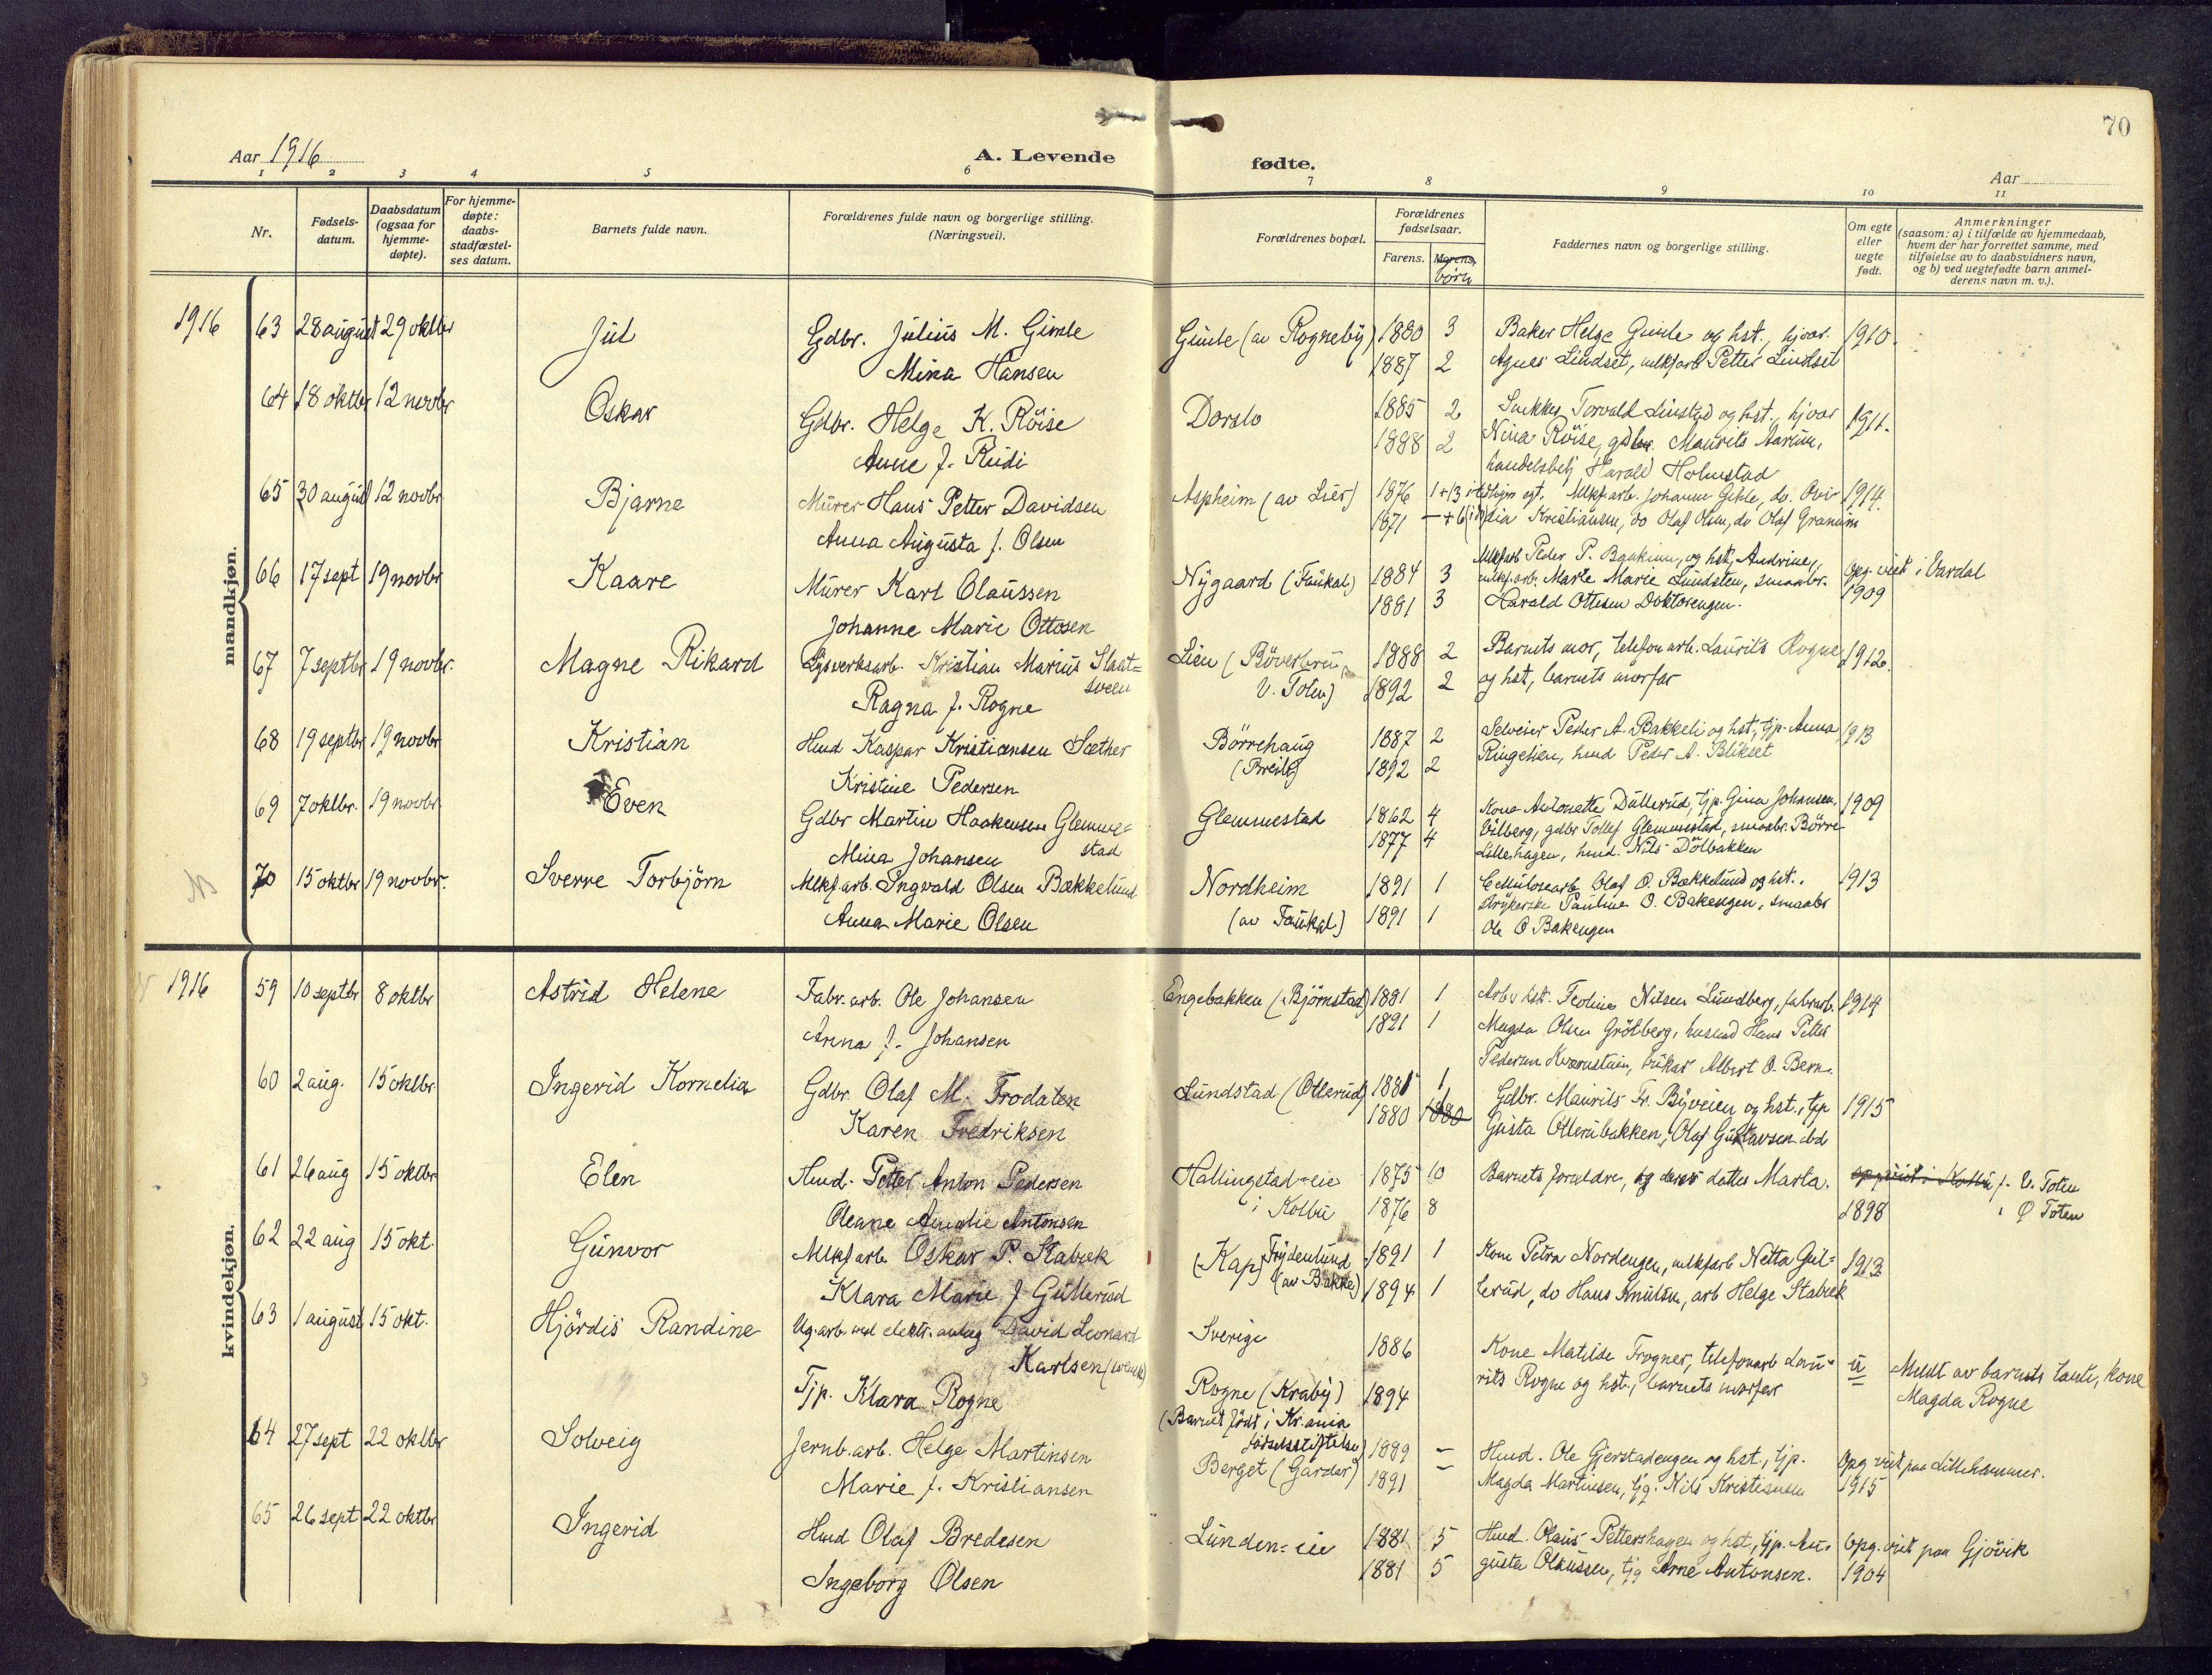 70
Aar 1916
A. Levende
fødte.
Aar
1 2 3 4 5 6 7 8 9 10 11
Nr.
Fødsels-
datum.
Daabsdatum
(ogsaa for
hjemme-
døpte).
For hjemme-
døpte:
daabs-
stadfæstel-
ses datum.
Barnets fulde navn.
Forældrenes fulde navn og borgerlige stilling.
(Næringsvei).
Forældrenes bopæl.
Forældrenes
fødselsaar.
Farens. Morens.
børn
Faddernes navn og borgerlige stilling.
Om egte
eller
uegte
født.
Anmerkninger
(saasom: a) i tilfælde av hjemmedaab,
hvem der har forrettet samme, med
tilføielse av to daabsvidners navn,
og b) ved uegtefødte barn anmel-
derens navn m. v.).
mandkjøn.
1916 63 28 august 29 oktbr Jul Gdbr. Julius M. Gimle Gimle (av Rogneby) 1880 3 Baker Helge Gimle og hst., hjvær. 1910.
Mina Hansen 1887 2 Agnes Lindset, mlkfarb Petter Lindset
64 18 oktbr 12 novbr Oskar Gdbr. Helge K. Röise Dorslo 1885 2 Snekker Torvald Linstad og hst., hjvær 1911.
Anne f. Rudi 1888 2 Nina Röise, gdbr. Maurits Aarum,
handelsbetj Harald Holmstad
65 30 august 12 novbr Bjarne Murer Hans Petter Davidsen Aspheim (av Lier) 1876 1+13 i tidligere egt. Mlkf.arb. Johanne Gihle, do. Ovi- 1914.
Anna Augusta f. Olsen 1871 -+6 dia Kristiansen, do Olaf Olsen, do Olaf Granum
66 17 sept 19 novbr Kaare Murer Karl Olaussen Nygaard (Faukal) 1884 3 Mlkfarb Peder P. og hst, Andrine, opg. viet i Vardal
Johanne Marie Ottosen 1881 3 mlkf.arb. Marie Lundsten, smaabr. 1909
Harald Ottesen Doktorengen.
67 7 septbr 19 novbr. Magne Rikard Lysverksarb. Kristian Marius Slaat= Lien (Böverbru, 1888 2 Barnets mor, telefonarb. Laurits Rogne 1912.
sveen
Ragna f. Rogne V. Toten) 1892 2 og hst, barnets morfar
68 19 septbr 19 novbr Kristian Hmd Kaspar Kristiansen Sæther Börrehaug 1887 2 Selveier Peder A. Bakkeli og hst, tjp. Anna 1913
Kristine Pedersen 1892 2 Ringelien, hmd Peder A. Blikset
69 7 oktbr. 19 novbr Even Gdbr Martin Haakensen Glemme= Glemmestad 1862 4 Kone Antonette Dullerud, tjp. Gina Johansen, 1909
stad
Mina Johansen 1877 4 Vilberg, gdbr Tollef Glemmestad, smaabr. Börre
Lillehagen, hmd. Nils Dölbakken
70 15 oktbr 19 novbr. Sverre Torbjörn Mlkf arb. Ingvald Olsen Bækkelund Nordheim 1891 1 Cellulosearb Olaf O. Bækkelund og hst., 1913
Anna Marie Olsen (av Faukal) 1891 1 strykerske Pauline O. Bakengen, smaabr
Ole O Bakengen
kvindekjøn.
1916 59 10 septbr 8 oktbr Astrid Helene Fabr. arb. Ole Johansen Engebakken (Björnstad) 1881 1 Nilsen Lundberg, fabrarb. 1914
Anna f. Johansen 1891 1 Magda Olsen Grötberg, husmd Hans Petter
Pedersen Kværnstuen, Albert O. Bern.
60 2 aug. 15 oktbr. Ingerid Kornelia Gdbr. Olaf M. Frodaten Lundstad (Ollerud) 1881 1 Gdbr. Maurits Fr. Byveien og hst., tjp 1915
Karen Fredriksen 1880 1880 Gusta Ollerubakken, Olaf Gustavsen
61 26 aug 15 oktbr Elen Hmd. Petter Anton Pedersen Hallingstad=eie 1875 10 Barnets forældre, og deres datter Marta. V. Toten
Oleane Amalie Antonsen i Kolbu 1876 8 1898 Ø Toten
62 22 aug 15 okt. Gunvor Mlkf arb Oskar P. Stabæk (Kap) Frydenlund 1891 1 Kone Petra Nordengen, mlkfarb Netta Gul= 1913
Klara Marie f Gullerud (av Bakke) 1894 1 lerud, do Hans Knutsen, arb Helge Stabæk
63 1 august 15 okt. Hjördis Randine Ug. arb. ved elektr. anlæg David Leonard Sverige 1886 Kone Matilde Frogner, telefonarb Lau= u Meldt av barnets tante, kone
Karlsen (svensk)
Tjp. Klara Rogne Rogne (Kraby) 1894 rits Rogne og hst., barnets morfar Magda Rogne
(Barnet födt i Kr.ania
födselsstiftelse)
64 27 sept 22 oktbr Solveig Jernb. arb. Helge Martinsen Berget (Garder) 1889 - Hmd. Ole Gjerstadengen og hst., tjp. Opg viet paa Lillehammer.
Marie f. Kristiansen 1891 - Magda Martinsen, tjg. Nils Kristiansen 1915
65 26 sept 22 oktbr Ingerid Hmd Olaf Bredesen Lunden=eie 1881 5 Hmd. Olaus Pettershagen og hst, tjp. Au= Opg. viet paa Gjövik
Ingeborg Olsen 1881 5 gusta Olaussen, tjg Arne Antonsen. 1904